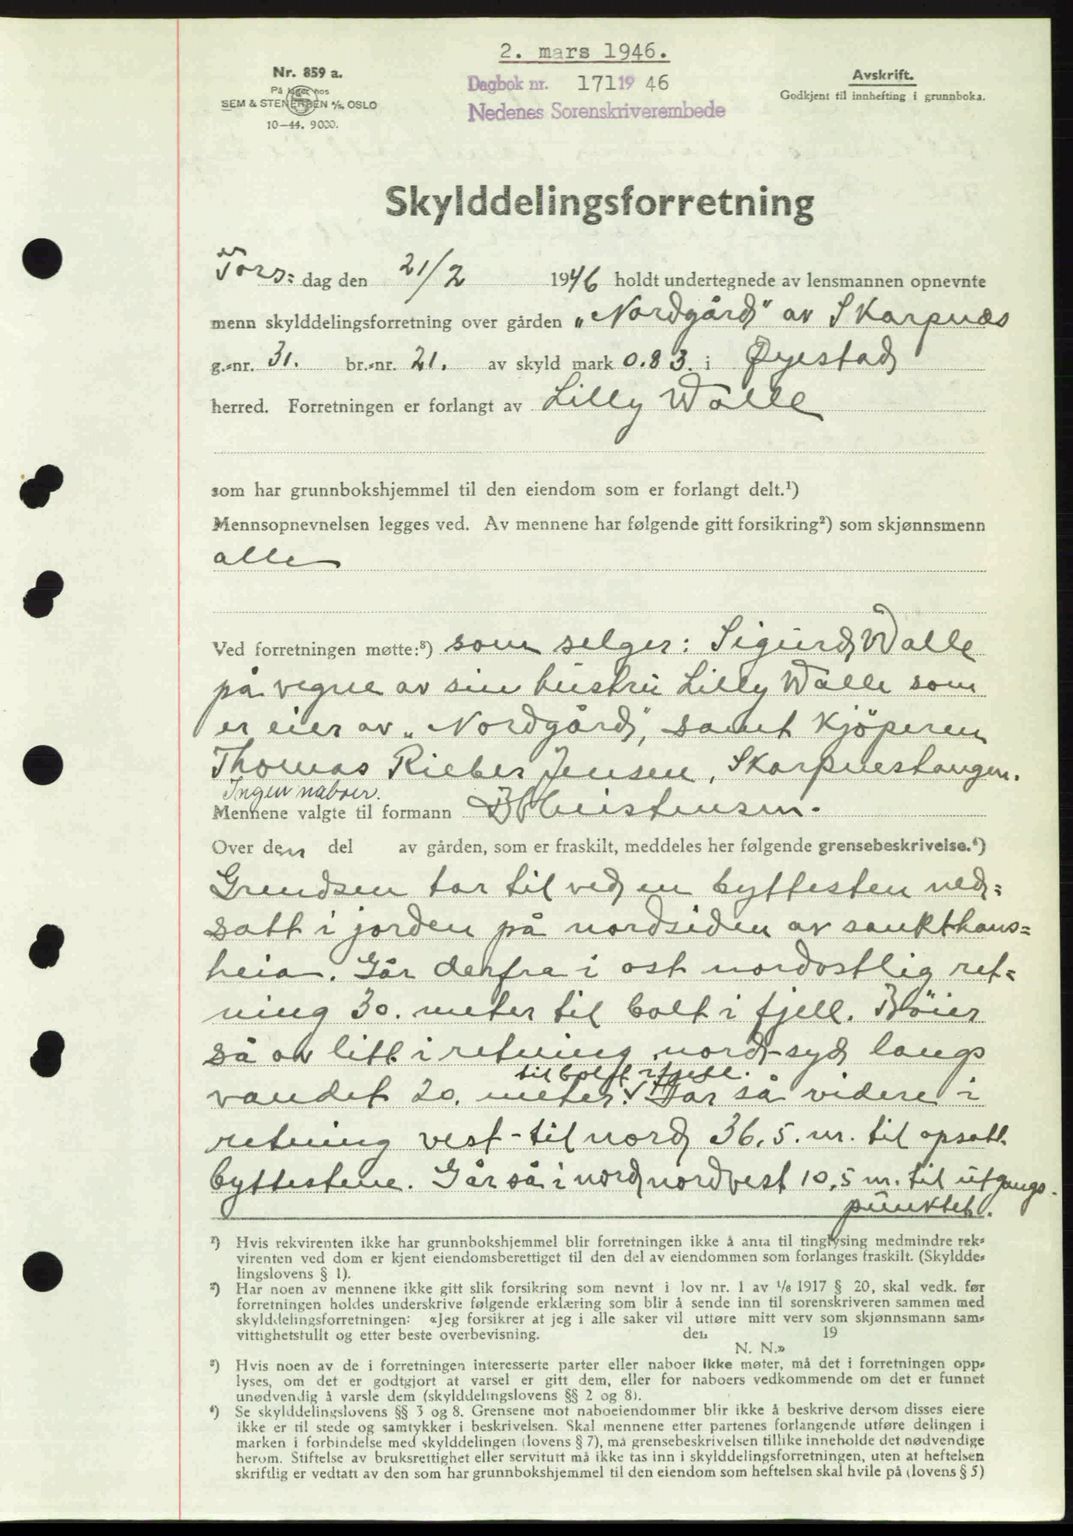 2. mars 1946.
Nr. 859 a.
På lager hos
SEM & STENERSEN A/S, OSLO
10-44. 9000.
Dagbok nr. 171 19 46
Nedenes Sorenskriverembede
Avskrift.
Godkjent til innhefting i grunnboka.
Skylddelingsforretning
Tors: dag den 21/2 1946 holdt undertegnede av lensmannen opnevnte
menn skylddelingsforretning over gården „Nordgård” av Skarpnes
g.-nr. 31. br.-nr. 21. av skyld mark 0.83. i Øyestad
herred. Forretningen er forlangt av Lilly Walle
som har grunnbokshjemmel til den eiendom som er forlangt delt.¹)
Mennsopnevnelsen legges ved. Av mennene har følgende gitt forsikring²) som skjønnsmenn
alle
Ved forretningen møtte:³) som selger: Sigurd Walle
på vegne av sin hustru Lilly Walle som
er eier av „Nordgård”, samt kjöperen
Thomas Rieber Jensen, Skarpnestangen.
Ingen naboer.
Mennene valgte til formann Christensen.
Over den del av gården, som er fraskilt, meddeles her følgende grensebeskrivelse.⁴)
Grendsen tar til ved en byttesten ned-
satt i jorden på nordsiden av sankthans=
heia. Går derfra i ost nordostlig ret-
ning 30. meter til bolt i fjell. Böier
så av litt i retning nord-syd langs
til bolt i fjell.
vandet 20. meter. Går så videre i
retning vest-til nord 36,5. m. til opsatt
byttestene. Går så i nord nordvest 10,5 m. til utgangs-
punktet.
¹) Hvis rekvirenten ikke har grunnbokshjemmel blir forretningen ikke å anta til tinglysing medmindre rek-
virenten ved dom er kjent eiendomsberettiget til den del av eiendommen som forlanges fraskilt. (Skyldde-
lingslovens § 1).
²) Har noen av mennene ikke gitt slik forsikring som nevnt i lov nr. 1 av 1/6 1917 § 20, skal vedk. før
forretningen holdes underskrive følgende erklæring som blir å sende inn til sorenskriveren sammen med
skylddelingsforretningen: «Jeg forsikrer at jeg i alle saker vil utføre mitt verv som skjønnsmann sam-
vittighetsfullt og etter beste overbevisning. den 19
N. N.»
³) Hvis noen av de i forretningen interesserte parter eller naboer ikke møter, må det i forretningen opp-
lyses, om det er godtgjort at varsel er gitt dem, eller for naboers vedkommende om det er funnet
unødvendig å varsle dem (skylddelingslovens §§ 2 og 8).
⁴) Se skylddelingslovens §§ 3 og 8. Grensene mot naboeiendommer blir ikke å beskrive dersom disses eiere
ikke er til stede og samtykker i beskrivelsen. Skal mennene etter partenes forlangende utføre delingen i
marken i forbindelse med skylddelingen (lovens § 7), må grensebeskrivelsen tillike inneholde det nødvendige
herom. Stiftelse av bruksrettighet eller servitutt må ikke tas inn i skylddelingsforretningen, uten at heftelsen
skriftlig er vedtatt av den som har grunnbokshjemmel til den eiendom som heftelsen skal hvile på (lovens § 5)